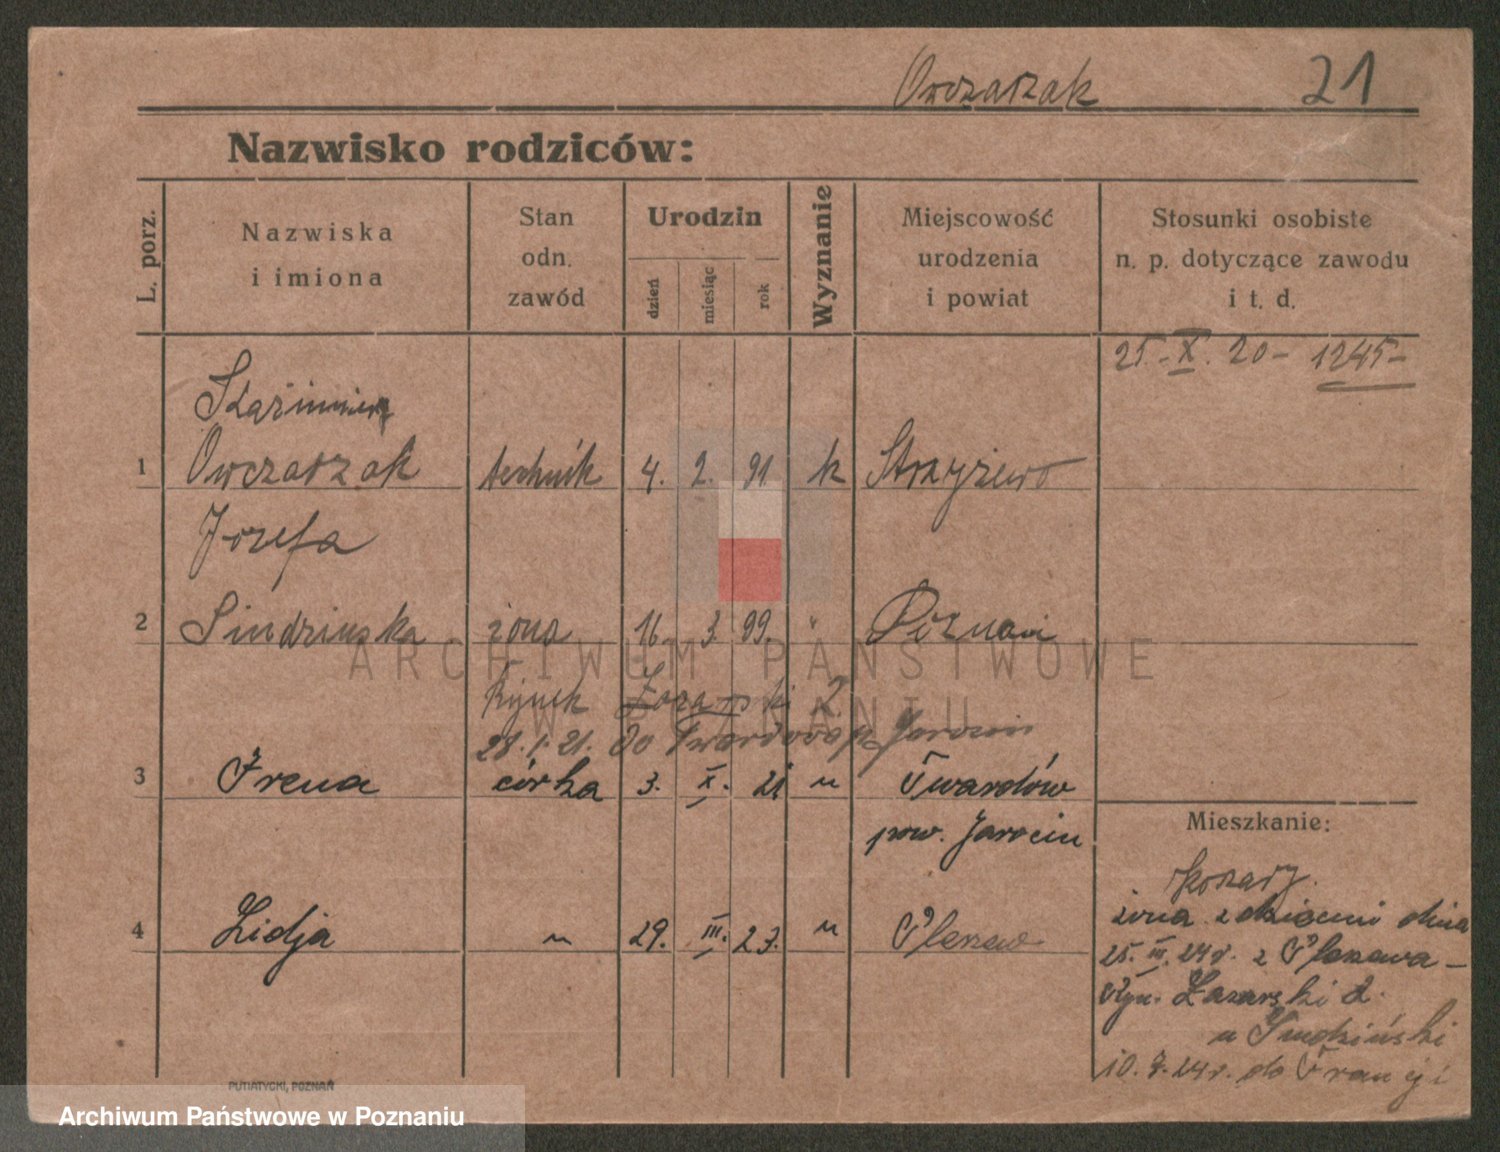 Owczarzak 21
Nazwisko rodziców:
L. porz.
Nazwiska
i imiona
Stan
odn.
zawód
Urodzin
dzień
miesiąc
rok
Wyznanie
Miejscowość
urodzenia
i powiat
Stosunki osobiste
n. p. dotyczące zawodu
i t. d.
25-X. 20- 1245-
Kaźimierz
1 Owczarzak technik 4. 2. 91 k Strzyżewo
Józefa
2 żona 16. 3. 99. " Poznań
Rynek Łazarski 2.
28.1.21. do Twardowa p. Jarocin
3 Irena córka 3. X. 21 " Twardów
pow. Jarocin
Mieszkanie:
żona z dziećmi dnia
4 Lidja " 29. III. 23. " Pleszew
25. III. 24 r. z Pleszewa -
Ryn. Łazarski 2.
u
10. 7. 24 r. do Francji
PUTIATYCKI, POZNAŃ
ARCHIWUM PAŃSTWOWE
W POZNANIU
Archiwum Państwowe w Poznaniu